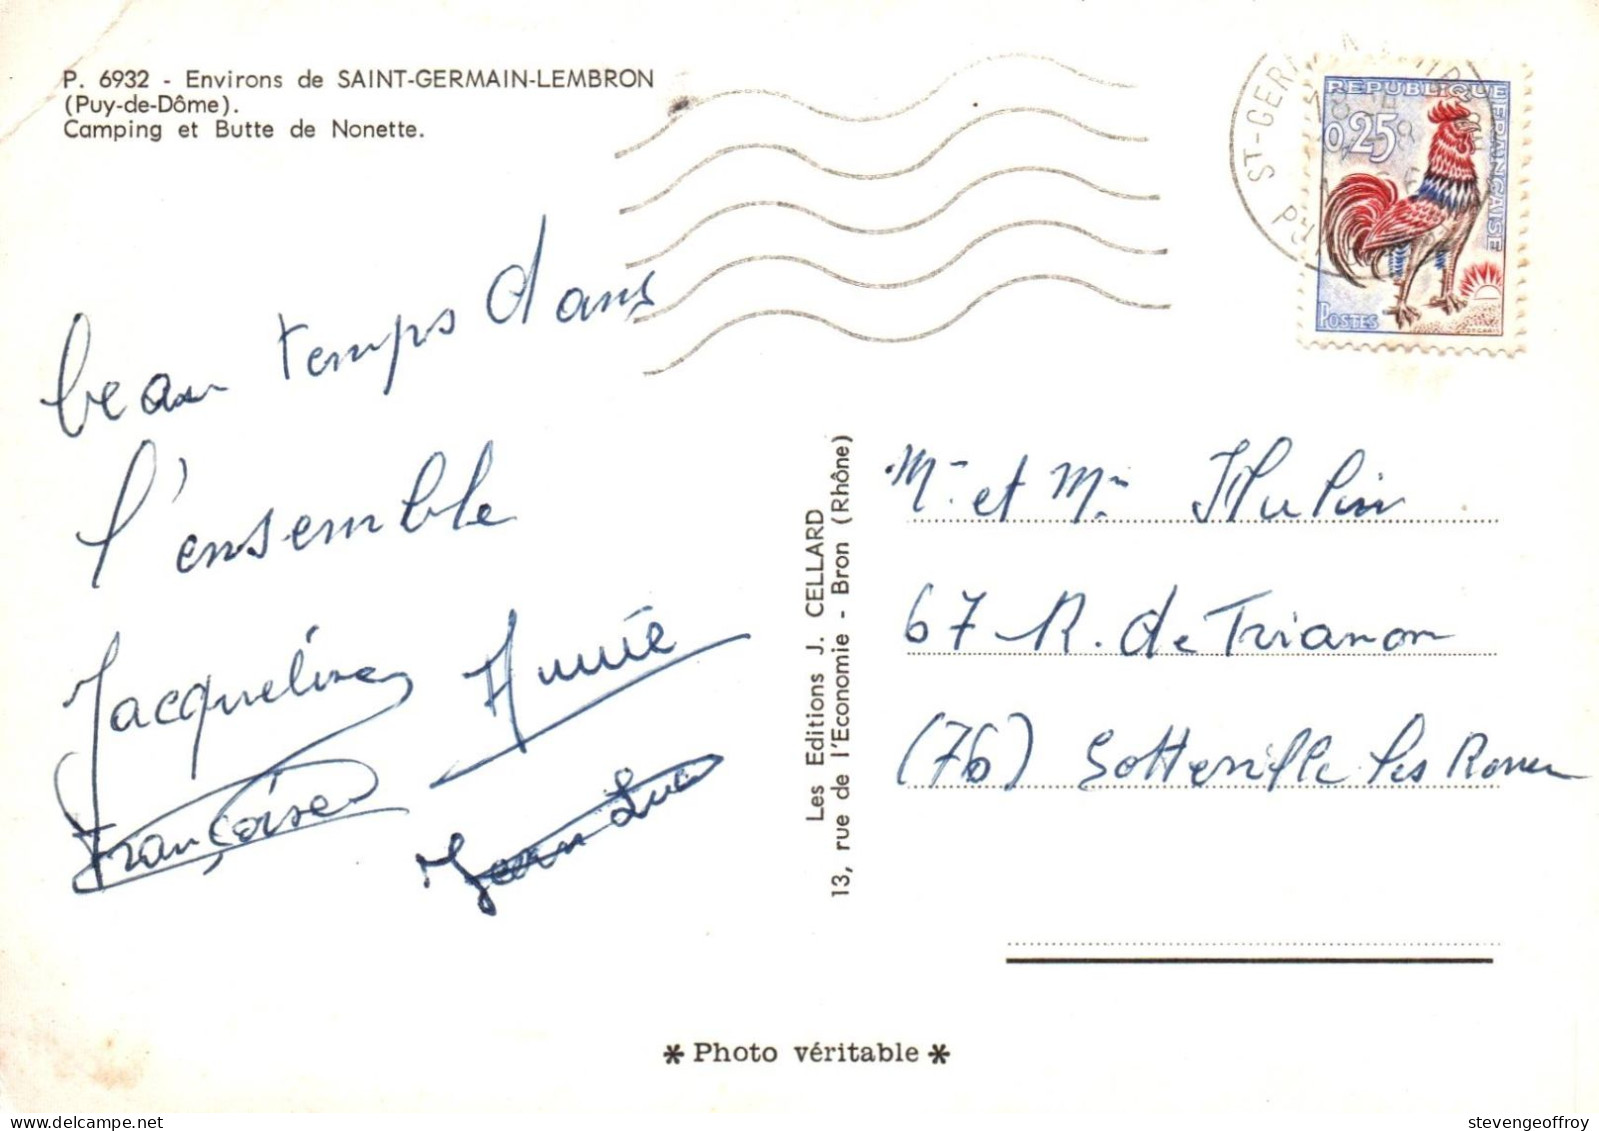 P. 6932 - Environs de SAINT-GERMAIN-LEMBRON
(Puy-de-Dôme).
Camping et Butte de Nonette.
ST-GERMAIN
REPUBLIQUE FRANÇAISE
0,25
POSTES
beau temps dans
l'ensemble
Jacqueline Annie
Françoise Jean Luc
Les Editions J. CELLARD
13, rue de l'Economie - Bron (Rhône)
Mr et Mm Hulin
67 R. de Trianon
(76) Sotteville les Rouen
* Photo véritable *
stevengeoffroy